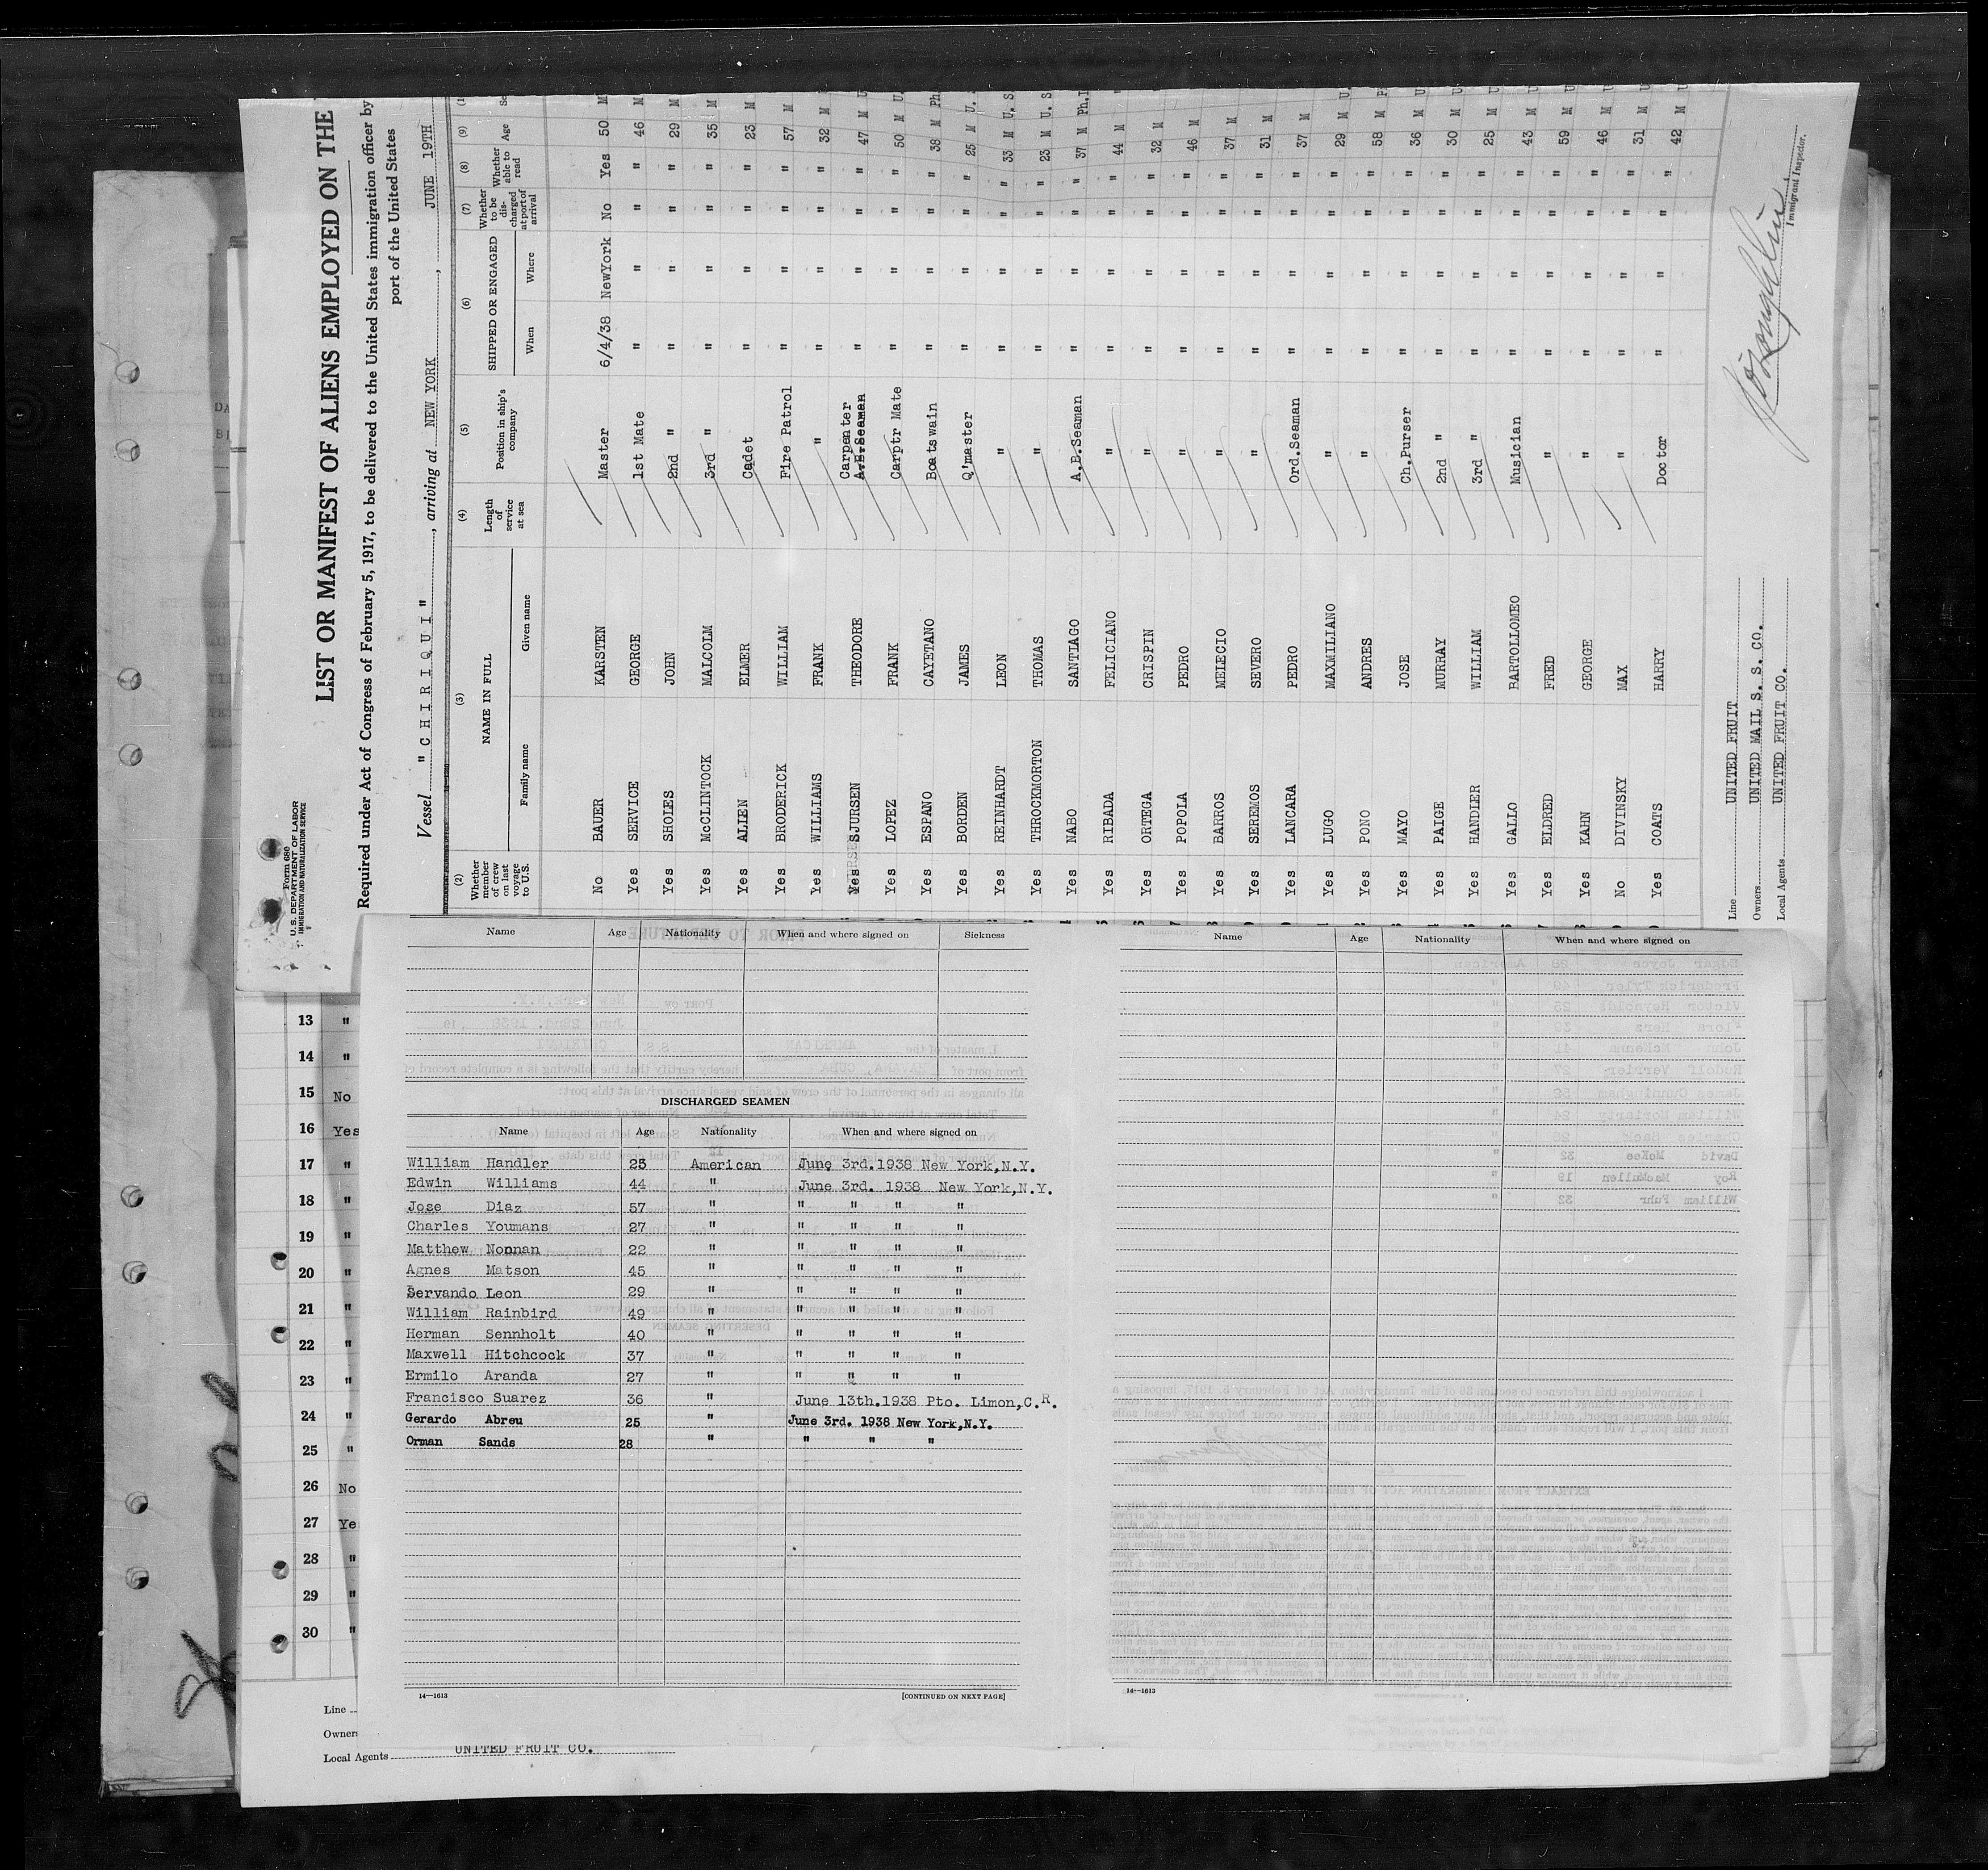 Form 680
U. S. DEPARTMENT OF LABOR
IMMIGRATION AND NATURALIZATION SERVICE
LIST OR MANIFEST OF ALIENS EMPLOYED ON THE
Required under Act of Congress of February 5, 1917, to be delivered to the United States immigration officer by
port of the United States
Vessel "CHIRIQUI", arriving at NEW YORK, JUNE 19TH
(2) (3) (4) (5) (6) (7) (8) (9)
Whether member of crew on last voyage to U.S. NAME IN FULL Length of service at sea Position in ship's company SHIPPED OR ENGAGED Whether to be discharged at port of arrival Whether able to read Age
Family name Given name When Where
No BAUER KARSTEN Master 6/4/38 NewYork No Yes 50 M
Yes SERVICE GEORGE 1st Mate " " " " 46 M
Yes SHOLES JOHN 2nd " " " " " 29 M
Yes McCLINTOCK MALCOLM 3rd " " " " " 35 M
Yes ALLEN ELMER Cadet " " " " 23 M
Yes BRODERICK WILLIAM Fire Patrol " " " " 57 M
Yes WILLIAMS FRANK " " " " " 32 M
Yes SJURSEN THEODORE Carpenter A.B.Seaman " " " " 47 M U.
Yes LOPEZ FRANK Carptr Mate " " " " 50 M U.
Yes ESPANO CAYETANO Boatswain " " " " 38 M Ph.
Yes BORDEN JAMES Q'master " " " " 25 M U.
Yes REINHARDT LEON " " " " " 33 M U. S.
Yes THROCKMORTON THOMAS " " " " " 23 M U. S
Yes NABO SANTIAGO A.B.Seaman " " " " 37 M Ph.I
Yes RIBADA FELICIANO " " " " " 44 M "
Yes ORTEGA CRISPIN " " " " " 32 M
Yes POPOLA PEDRO " " " " " 46 M
Yes BARROS MELECIO " " " " " 37 M
Yes SEREMOS SEVERO " " " " " 31 M
Yes LANCARA PEDRO Ord.Seaman " " " " 37 M
Yes LUGO MAXMILIANO " " " " " 29 M U.
Yes PONO ANDRES " " " " " 58 M P
Yes MAYO JOSE Ch.Purser " " " " 36 M U
Yes PAIGE MURRAY 2nd " " " " " 30 M U
Yes HANDLER WILLIAM 3rd " " " " " 25 M U
Yes GALLO BARTOLLOMEO Musician " " " " 43 M U
Yes ELDRED FRED " " " " " 59 M U
Yes KAHN GEORGE " " " " " 46 M U
No DIVINSKY MAX " " " " " 31 M U
Yes COATS HARRY Doctor " " " " 42 M U
Line UNITED FRUIT
Owners UNITED MAIL S. S. CO.
Local Agents UNITED FRUIT CO.
Immigrant Inspector.
Name Age Nationality When and where signed on Sickness
DISCHARGED SEAMEN
Name Age Nationality When and where signed on
William Handler 25 American June 3rd.1938 New York,N.Y.
Edwin Williams 44 " June 3rd. 1938 New York,N.Y.
Jose Diaz 57 " " " " "
Charles Youmans 27 " " " " "
Matthew Noonan 22 " " " " "
Agnes Matson 45 " " " " "
Servando Leon 29 " " " " "
William Rainbird 49 " " " " "
Herman Sennholt 40 " " " " "
Maxwell Hitchcock 37 " " " " "
Ermilo Aranda 27 " " " " "
Francisco Suarez 36 " June 13th.1938 Pto. Limon,C.R.
Gerardo Abreu 25 " June 3rd. 1938 New York,N.Y.
Orman Sands 28 " " " "
14—1613 [CONTINUED ON NEXT PAGE]
Name Age Nationality When and where signed on
14—1613
13 "
14 "
15 No
16 Yes
17 "
18 "
19 "
20 "
21 "
22 "
23 "
24 "
25 "
26 No
27 Ye
28 "
29 "
30 "
Line
Owners
Local Agents UNITED FRUIT CO.